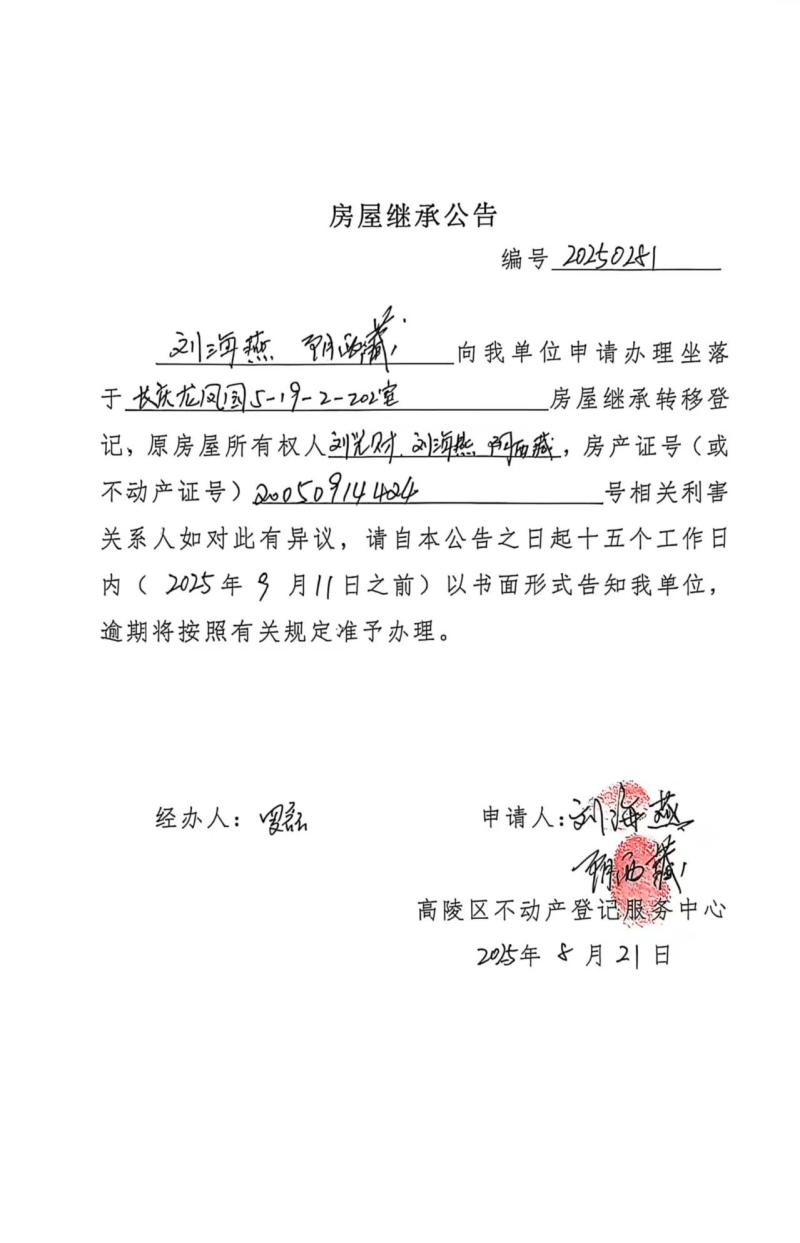 房屋继承公告
编号 20250281
刘海燕 西藏 向我单位申请办理坐落
于长庆龙凤园5-19-2-202室房屋继承转移登
记，原房屋所有权人刘光财、刘海燕 西藏，房产证号（或
不动产证号）200509144424号相关利害
关系人如对此有异议，请自本公告之日起十五个工作日
内（2025年9月11日之前）以书面形式告知我单位，
逾期将按照有关规定准予办理。
经办人：
申请人：刘海燕
西藏
高陵区不动产登记服务中心
2025年8月21日